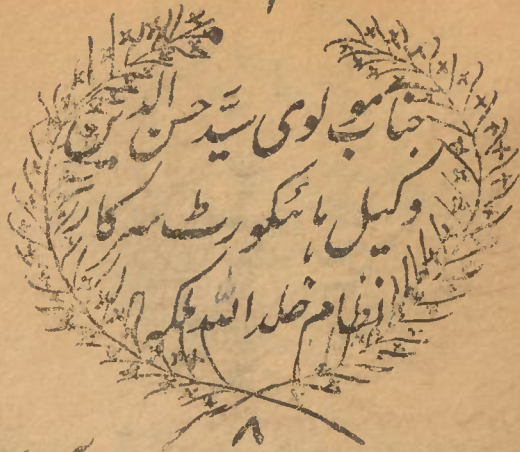 جناب مولوی سید حسن الدین
وکیل ہائیکورٹ سرکار
نظام خلد اللہ ملکہ
۸